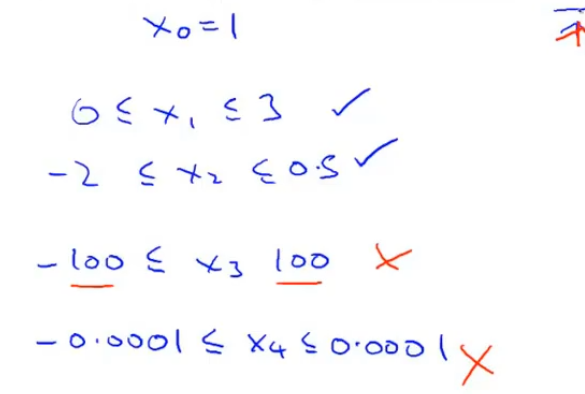 x₀ = 1
0 ≤ x₁ ≤ 3 ✓
-2 ≤ x₂ ≤ 0.5 ✓
-100 ≤ x₃ 100 ✗
-0.0001 ≤ x₄ ≤ 0.0001 ✗